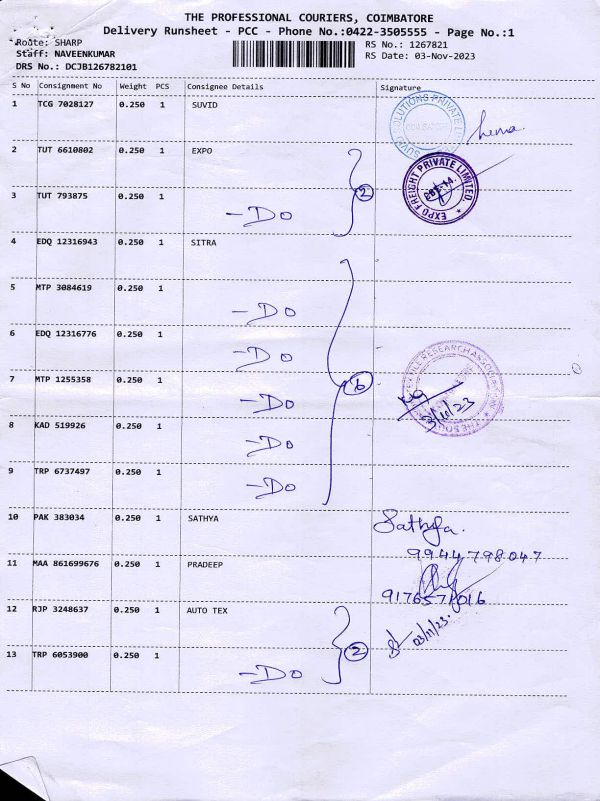 THE PROFESSIONAL COURIERS, COIMBATORE
Delivery Runsheet - PCC - Phone No.:0422-3505555 - Page No.:1
Route: SHARP
RS No.: 1267821
Staff: NAVEENKUMAR
RS Date: 03-Nov-2023
DRS No.: DCJB126782101
S No Consignment No Weight PCS Consignee Details Signature
1 TCG 7028127 0.250 1 SUVID
2 TUT 6610802 0.250 1 EXPO
EXPO FREIGHT PRIVATE LIMITED
3 TUT 793875 0.250 1
- Do 2
4 EDQ 12316943 0.250 1 SITRA
5 MTP 3084619 0.250 1
- Do
6 EDQ 12316776 0.250 1
- Do
7 MTP 1255358 0.250 1
- Do 6
3/11/23
8 KAD 519926 0.250 1
- Do
9 TRP 6737497 0.250 1
- Do
10 PAK 383034 0.250 1 SATHYA Sathya.
9944798047
11 MAA 861699676 0.250 1 PRADEEP
9176571016
12 RJP 3248637 0.250 1 AUTO TEX
03/11/23.
13 TRP 6053900 0.250 1
- Do 2